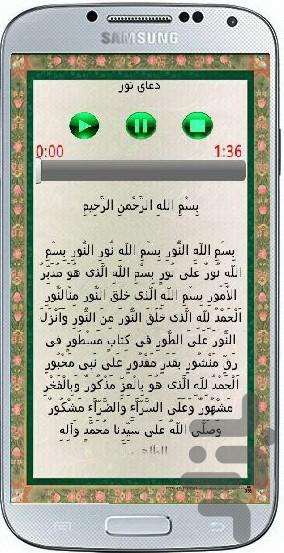 SAMSUNG
دعای نور
0:00 1:36
بِسْمِ اللهِ الرَّحْمنِ الرَّحیمِ
بِسْمِ اللَّهِ النُّورِ بِسْمِ اللَّهِ نُورِ النُّورِ بِسْمِ
اللَّهِ نُورٌ عَلَی نُورٍ بِسْمِ اللَّهِ الَّذِی هُوَ مُدَبِّرُ
الْأُمُورِ بِسْمِ اللَّهِ الَّذِی خَلَقَ النُّورَ مِنَالنُّورِ
الْحَمْدُ لِلَّهِ الَّذِی خَلَقَ النُّورَ مِنَ النُّورِ وَأَنْزَلَ
النُّورَ عَلَی الطُّورِ فِی کِتَابٍ مَسْطُورٍ فِی
رَقٍّ مَنْشُورٍ بِقَدَرٍ مَقْدُورٍ عَلَی نَبِیٍّ مَحْبُورٍ
الْحَمْدُ لِلَّهِ الَّذِی هُوَ بِالْعِزِّ مَذْکُورٌ وَبِالْفَخْرِ
مَشْهُورٌ وَعَلَی السَّرَّاءِ وَالضَّرَّاءِ مَشْکُورٌ
وَصَلَّی اللَّهُ عَلَی سَیِّدِنَا مُحَمَّدٍ وَآلِهِ
بازار